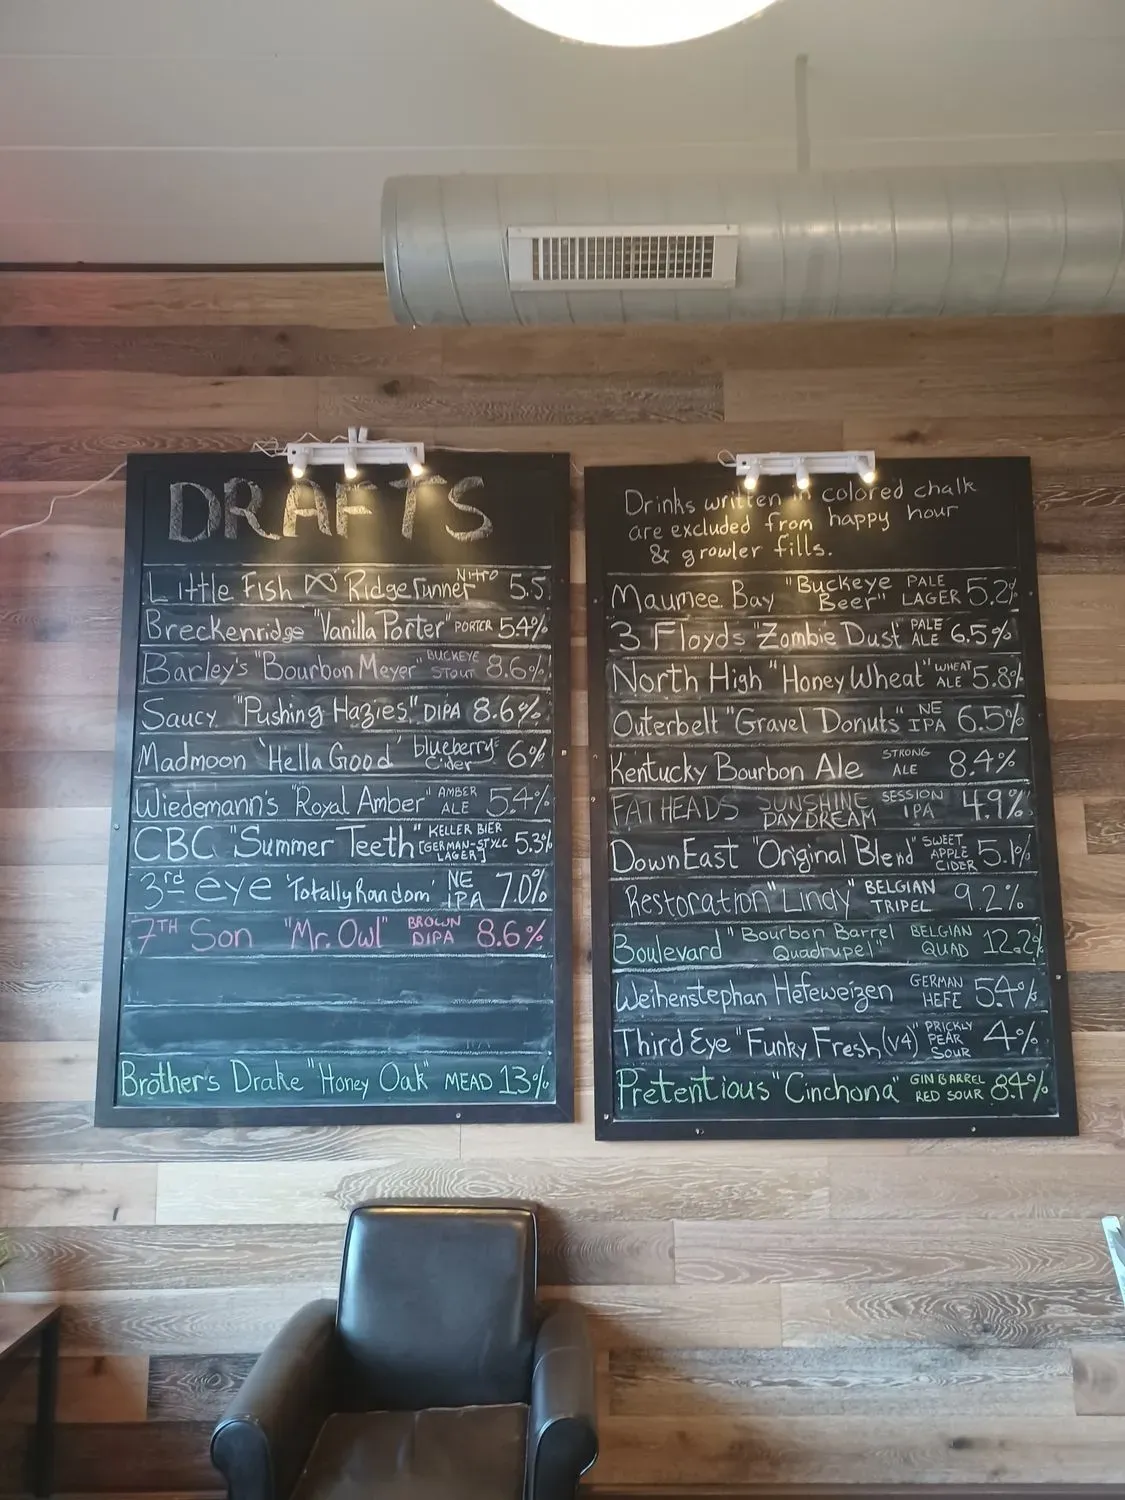 DRAFTS
Little Fish "Ridge runner" Nitro 5.5
Breckenridge "Vanilla Porter" PORTER 5.4%
Barley's "Bourbon Meyer" BUCKEYE STOUT 8.6%
Saucy "Pushing Hazies" DIPA 8.6%
Madmoon 'Hella Good' blueberry Cider 6%
Wiedemann's "Royal Amber" AMBER ALE 5.4%
CBC "Summer Teeth" KELLER BIER [GERMAN-STYLE LAGER] 5.3%
3rd eye 'Totally Random' NE IPA 7.0%
7TH Son "Mr. Owl" BROWN DIPA 8.6%
Brother's Drake "Honey Oak" MEAD 13%
Drinks written in colored chalk
are excluded from happy hour
& growler fills.
Maumee Bay "Buckeye Beer" PALE LAGER 5.2%
3 Floyds "Zombie Dust" PALE ALE 6.5%
North High "Honey Wheat" WHEAT ALE 5.8%
Outerbelt "Gravel Donuts" NE IPA 6.5%
Kentucky Bourbon Ale STRONG ALE 8.4%
FATHEADS SUNSHINE DAYDREAM SESSION IPA 4.9%
DownEast "Original Blend" SWEET APPLE CIDER 5.1%
Restoration "Linay" BELGIAN TRIPEL 9.2%
Boulevard "Bourbon Barrel Quadrupel" BELGIAN QUAD 12.2%
Weihenstephan Hefeweizen GERMAN HEFE 5.4%
Third Eye "Funky Fresh (v4)" PRICKLY PEAR SOUR 4%
Pretentious "Cinchona" GIN BARREL RED SOUR 8.4%